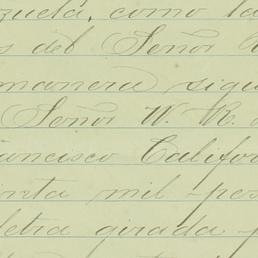 zuela, como la
s del Señor R
manera sigu
Señor W. R.
ancisco Califor
inta mil pes
letra girada